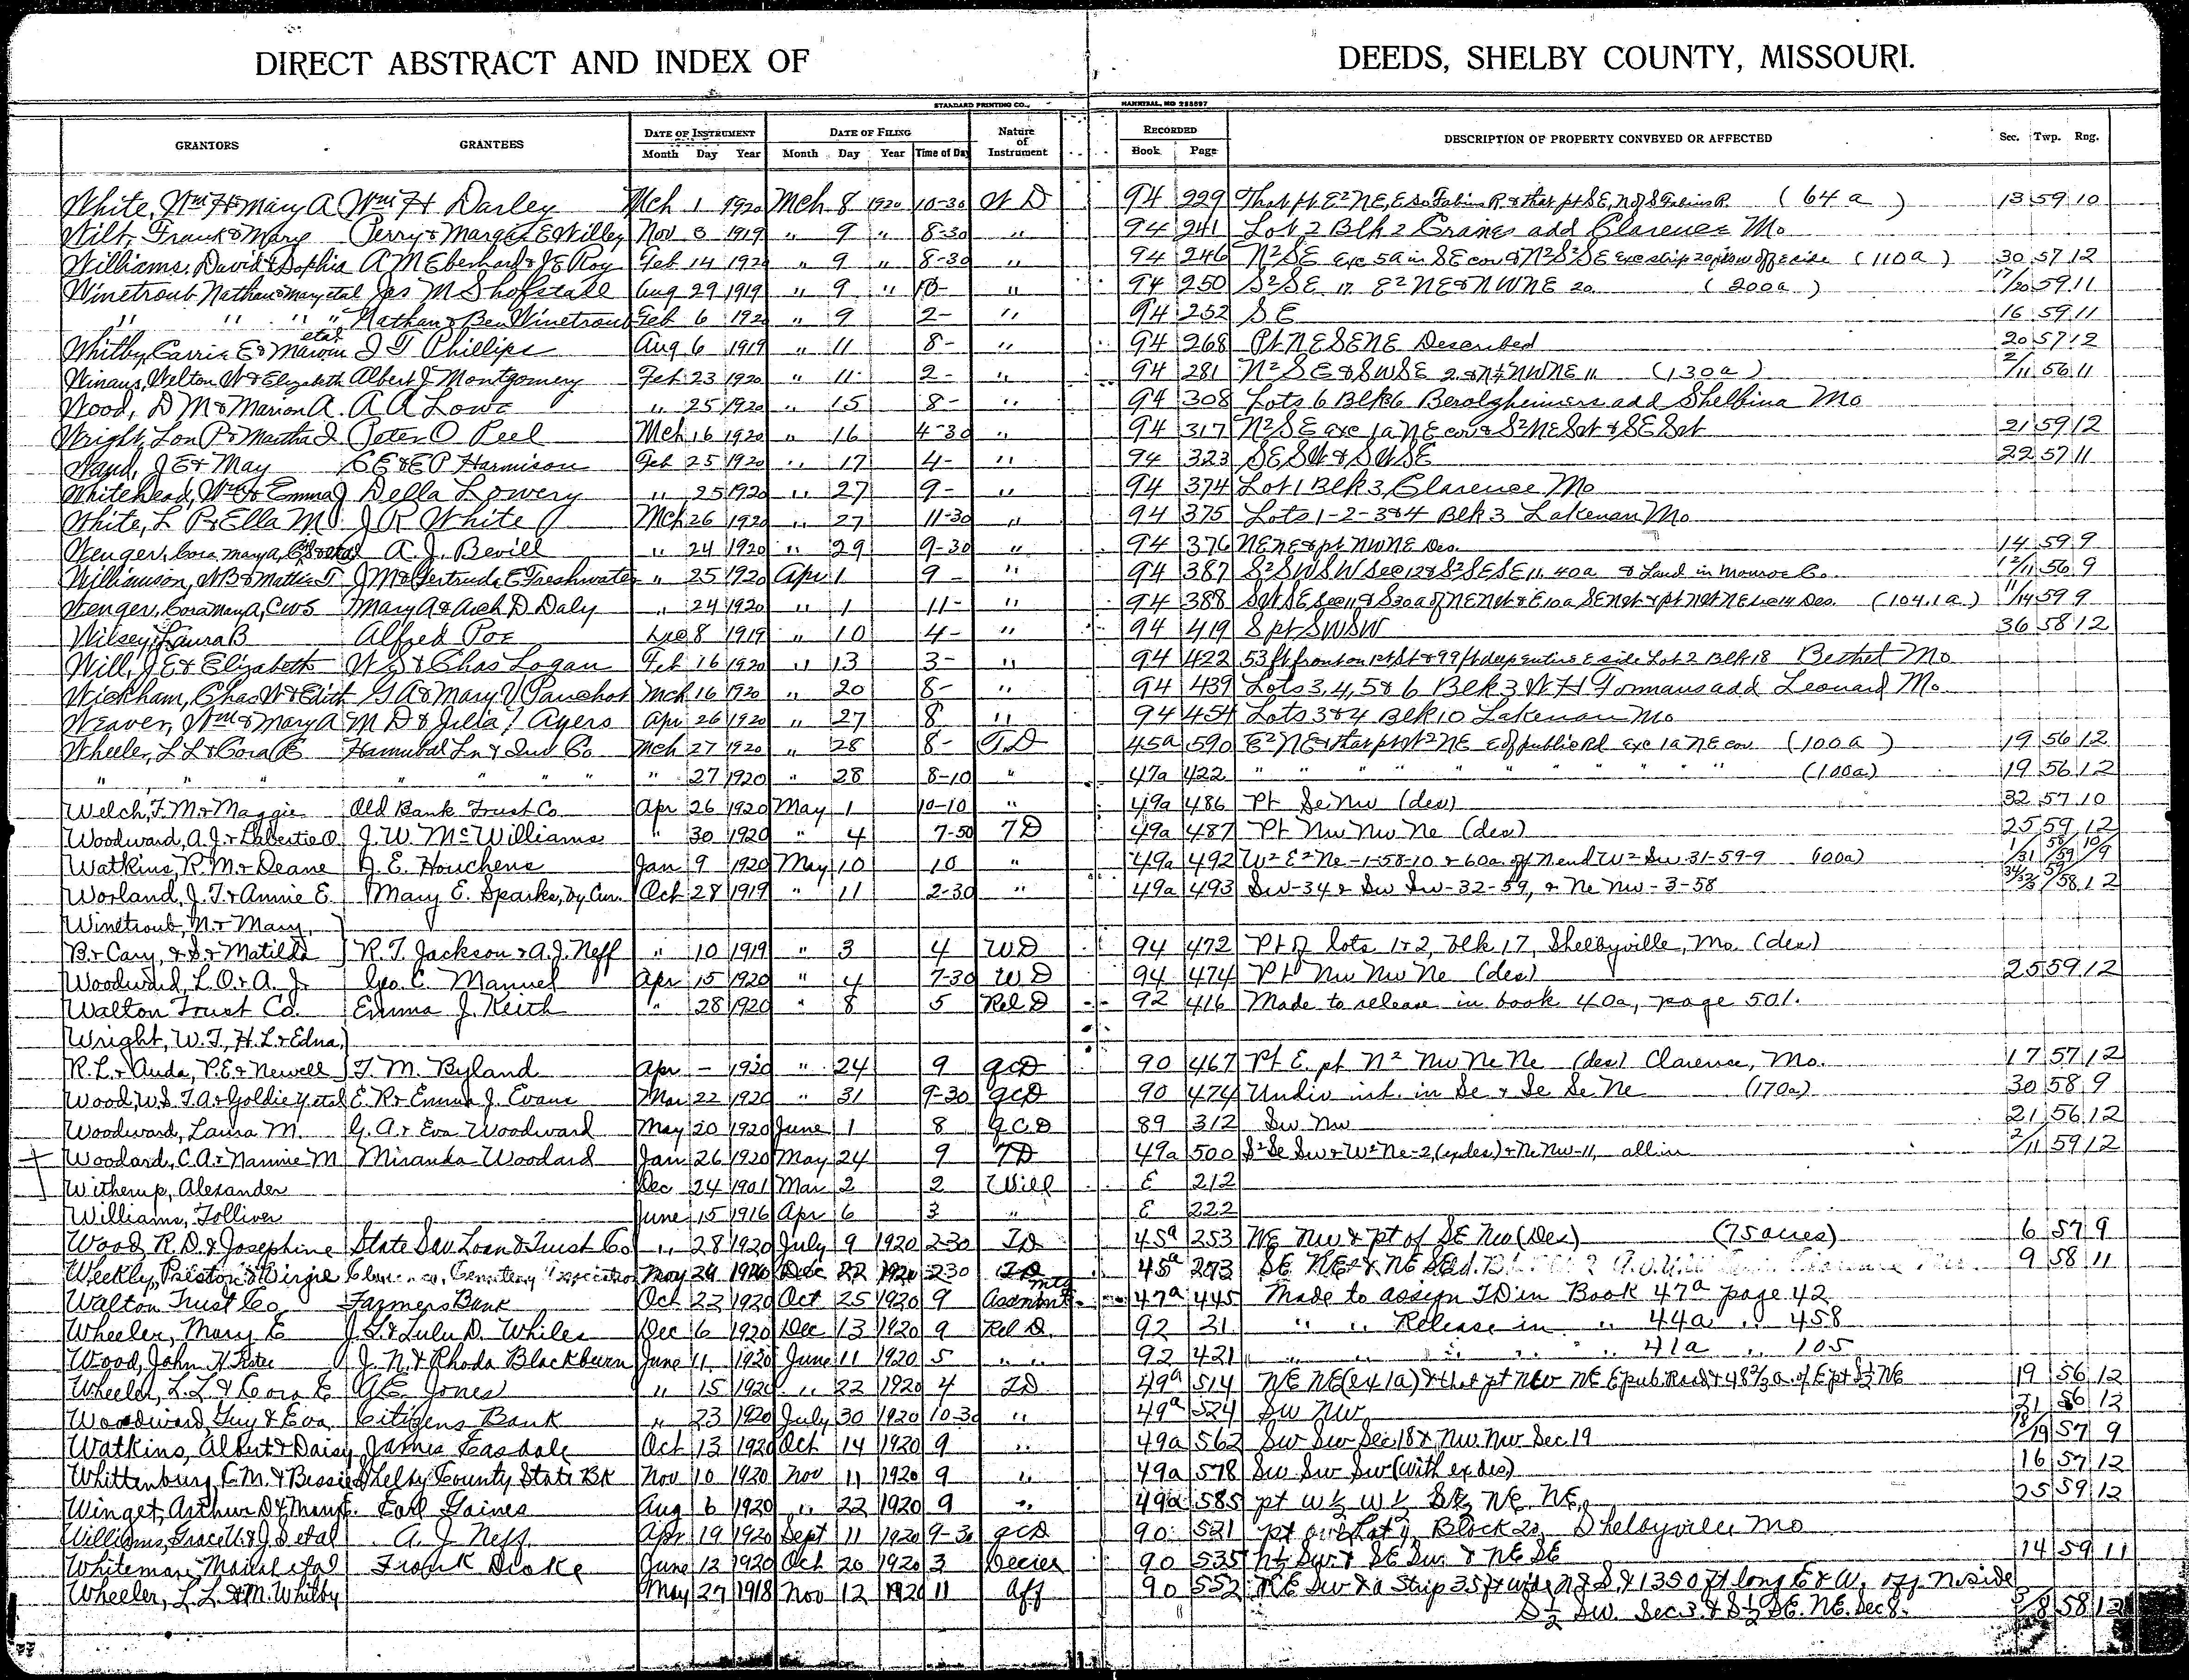 DIRECT ABSTRACT AND INDEX OF DEEDS, SHELBY COUNTY, MISSOURI.
STANDARD PRINTING CO., HANNIBAL, MO 255597
GRANTORS GRANTEES DATE OF INSTRUMENT DATE OF FILING Nature of Instrument RECORDED DESCRIPTION OF PROPERTY CONVEYED OR AFFECTED Sec. Twp. Rng.
Month Day Year Month Day Year Time of Day Book Page
White, Wm H & Mary A Wm H Darley Mch 1 1920 Mch 8 1920 10-30 W D 94 229 That pt E2 NE, E So Fabius R & that pt SE, N of S Fabius R (64 a) 13 59 10
Wilt, Frank & Mary Perry & Margar E Willey Nov 8 1919 " 9 " 8-30 " 94 241 Lot 2 Blk 2 Crains add Clarence Mo
Williams, David & Sophia A M Eberhard & J E Roy Feb 14 1920 " 9 " 8-30 " 94 246 N2 SE exc 5a in SE cor & N2 S2 SE exc strip off E side (110 a) 30 57 12
Winetroub Nathan & Mary etal Jas M Shofstall Aug 29 1919 " 9 " 10- " 94 250 S2 SE 17 E2 NE & NW NE 20 (200a) 17/20 59 11
" " " " Nathan & Ben Winetroub Feb 6 1920 " 9 2- " 94 252 SE 16 59 11
Whitby, Carrie E & Marvin etal J T Phillips Aug 6 1919 " 11 8- " 94 268 Pt NE SE NE Described 20 57 12
Winans, Welton W & Elizabeth Albert J Montgomery Feb 23 1920 " 11 2- " 94 281 N2 SE & SW SE 2 & N½ NW NE 11 (130a) 2/11 56 11
Wood, D M & Marion A. A A Lowe " 25 1920 " 15 8- " 94 308 Lots 6 Blk 6 Berolzheimers add Shelbina Mo
Wright, Lon P & Martha J Peter O Peel Mch 16 1920 " 16 4-30 " 94 317 N2 SE exc 1a NE cor & S2 NE SW & SE SW 21 59 12
Wand, J E & May C E & E P Harmison Feb 25 1920 " 17 4- " 94 323 SE SW & SW SE 22 57 11
Whitehead, Wm & Emma J Della Lowery " 25 1920 " 27 9- " 94 374 Lot 1 Blk 3, Clarence Mo
White, L P & Ella M. J R White Mch 26 1920 " 27 11-30 " 94 375 Lots 1-2-3&4 Blk 3 Lakenan Mo
Wenger, Cora May A, etal A. J. Bevill " 24 1920 " 29 9-30 " 94 376 NE NE & pt NW NE Des. 14 59 9
Williamson, W B & Mattie T J M & Gertrude E Freshwater " 25 1920 Apr 1 9 - " 94 387 S2 SW SW Sec 12 & S2 SE SE 11. 40a & Land in Monroe Co. 12/11 56 9
Wenger, Cora May A, CWS Mary A & Arch D Daly " 24 1920 " 1 11- " 94 388 SW SE Sec 11 & S30a of NE NW & E 10a SE NW & pt NW NE Sec 14 Des. (104.1a) 11/14 59 9
Wilsey, Laura B Alfred Poe Dec 8 1919 " 10 4- " 94 419 S pt SW SW 36 58 12
Will, J E & Elizabeth W S & Chas Logan Feb 16 1920 " 13 3- " 94 422 53 ft front on 1st St & 99 ft deep entire E side Lot 2 Blk 18 Bethel Mo
Wickham, Chas W & Edith G A & Mary V Panchot Mch 16 1920 " 20 8- " 94 439 Lots 3, 4, 5 & 6 Blk 3 W H Formans add Leonard Mo
Weaver, Wm & Mary A M D & Julia Ayers Apr 26 1920 " 27 8 " 94 454 Lots 3 & 4 Blk 10 Lakenan Mo
Wheeler, L L & Cora E Hannibal Ln & Ind Co Mch 27 1920 " 28 8- T D 45a 590 E2 NE & that pt W2 NE E of public Rd exc 1a NE cor (100a) 19 56 12
" " " " " " " " 27 1920 " 28 8-10 " 47a 422 " " " " " " " " " (100a) 19 56 12
Welch, F. M. & Maggie Old Bank Trust Co Apr 26 1920 May 1 10-10 " 49a 486 Pt Se Nw (des) 32 57 10
Woodward, A. J. & Labertie O. J. W. McWilliams " 30 1920 " 4 7-50 TD 49a 487 Pt Nw Nw Ne (des) 25 59 12
Watkins, R. M. & Deane J. E. Houchens Jan 9 1920 May 10 10 " 49a 492 W2 E2 Ne -1-58-10 & 60a off N end W2 Sw 31-59-9 (100a) 1/31 58/59 10/9
Worland, J. T. & Annie E. Mary E. Sparks, by Cur. Oct 28 1919 " 11 2-30 " 49a 493 Sw-34 & Sw Sw-32-59, & Ne Nw-3-58 34/32/3 59/58 12
Winetroub, N. & Mary,
B. & Cary, & S. & Matilda R. T. Jackson & A. J. Neff " 10 1919 " 3 4 WD 94 472 Pt of lots 1 & 2, blk 17, Shelbyville, Mo. (des)
Woodward, L. O. & A. J. Geo. C. Manuel Apr 15 1920 " 4 7-30 WD 94 474 Pt Nw Nw Ne (des) 25 59 12
Walton Trust Co. Emma J. Keith " 28 1920 " 8 5 Rel D 92 416 Made to release in book 40a, page 501.
Wright, W. T., H. L. & Edna,
R. L. & Auda, P. E. & Newell T. M. Byland Apr - 1920 " 24 9 QCD 90 467 Pt E. pt N2 Nw Ne Ne (des) Clarence, Mo. 17 57 12
Wood, W. S. T. A. & Goldie Y etal E. R. & Emma J. Evans Mar 22 1920 " 31 9-30 QCD 90 474 Undiv int. in Se & Se Se Ne (170a) 30 58 9
Woodward, Laura M. G. A. & Eva Woodward May 20 1920 June 1 8 Q.C.D 89 312 Sw Nw 21 56 12
Woodard, C. A. & Nannie M Miranda Woodard Jan 26 1920 May 24 9 TD 49a 500 S2 Se Sw & W2 Ne-2, (ex des) & Ne Nw-11, all in 2/11 59 12
Witherup, Alexander Dec 24 1901 Mar 2 2 Will E 212
Williams, Tolliver June 15 1916 Apr 6 3 " E 222
Wood, R. D. & Josephine State Sav Loan & Trust Co " 28 1920 July 9 1920 2-30 TD 45a 253 NE Nw & pt of SE Nw (Des) (75 acres) 6 57 9
Weekly, Preston & Virgie Cemetery Association May 24 1920 Dec 22 1920 2-30 TD 45a 273 SE NE & NE SE 9 58 11
Walton Trust Co Farmers Bank Oct 22 1920 Oct 25 1920 9 Assnmt mtg 47a 445 Made to assign TD in Book 47a page 42
Wheeler, Mary E J. S. & Lulu D. Whiles Dec 6 1920 Dec 13 1920 9 Rel D. 92 31 " " Release in " 44a " 458
Wood, John H Trstee J. N. & Rhoda Blackburn June 11 1920 June 11 1920 5 " " 92 421 " " " " " 41a " 105
Wheeler, L. L. & Cora E G. E. Jones " 15 1920 " 22 1920 4 TD 49a 514 NE NE (ex 1a) & that pt Nw NE E pub. Road & 48 2/3 a. of E pt S½ NE 19 56 12
Woodward, Guy & Eva Citizens Bank " 23 1920 July 30 1920 10-30 " 49a 524 Sw NW 21 56 12
Watkins, Albert & Daisy James Easdale Oct 13 1920 Oct 14 1920 9 " 49a 562 Sw Sw Sec. 18 & Nw. Nw Sec 19 18/19 57 9
Whittenburg, C. M. & Bessie Shelby County State Bk Nov 10 1920 Nov 11 1920 9 " 49a 578 Sw Sw Sw (with ex des) 16 57 12
Winget, Arthur D & Mary E. Earl Gaines Aug 6 1920 " 22 1920 9 " 49a 585 pt W½ W½ SE, NE. NE, 25 59 12
Williams, Grace & J. S etal A. J. Neff Apr 19 1920 Sept 11 1920 9-30 QCD 90 521 pt Lot Block 22, Shelbyville Mo
Whiteman, etal Frank Drake June 12 1920 Oct 20 1920 3 Decree 90 535 N½ Sw. & SE Sw. & NE SE 14 59 11
Wheeler, L. L. & M. Whitby May 27 1918 Nov 12 1920 11 Aff 90 552 NE Sw & a Strip 35 ft wide N & S & 1350 ft long E & W. off N side
S½ SW. Sec. 3. & S½ SE. NE. Sec 8. 3/8 58 12